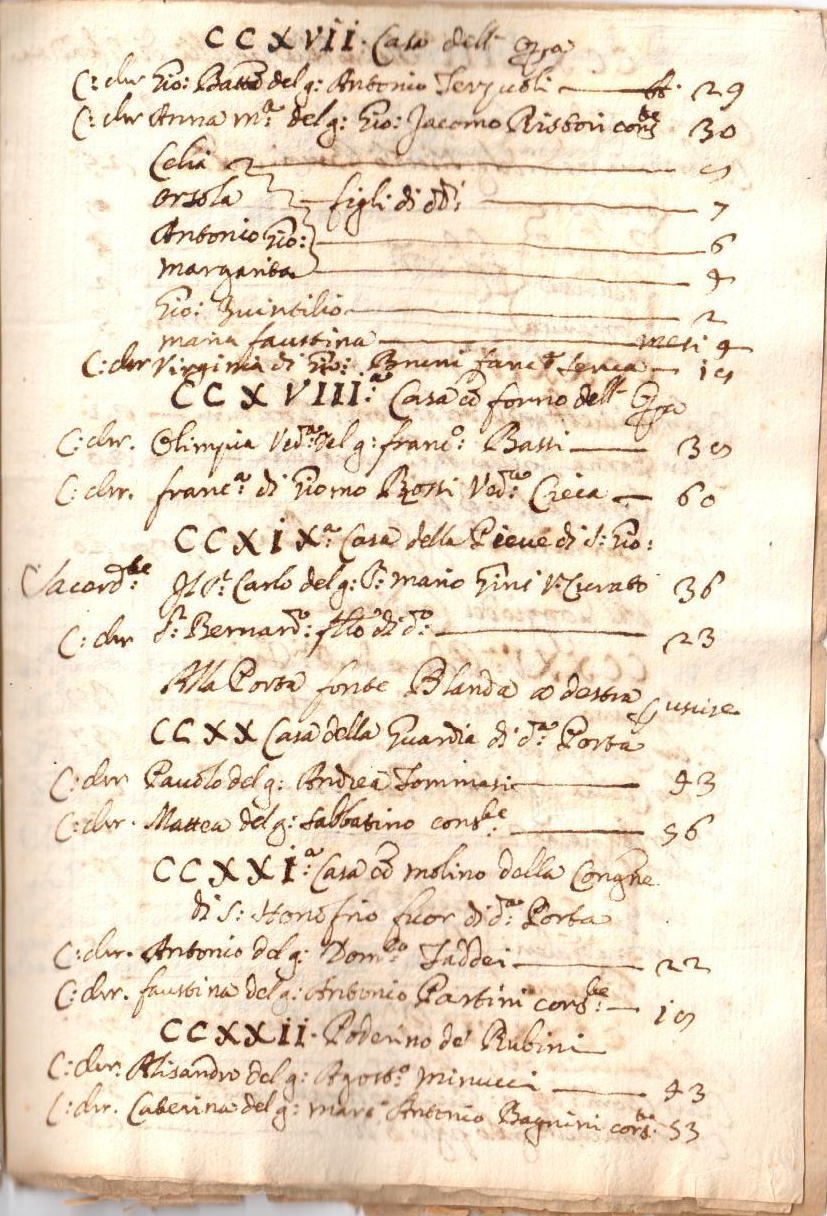 CCXVII. Casa dell' Opa
C: chr Gio: Batta del q: Antonio Serpuoli — ff. 29
C: chr Anna Ma del q: Gio: Jacomo Ristori conste 30
Celia — 9
Orsola — figli di dti — 7
Antonio Gio: — 6
Margarita — 4
Gio: Quintilio — 2
Maria faustina — mesi 4
C: chr Virginia di Gio: Bruni serva — 19
CCXVIII.a Casa co forno dell' Opa
C: chr. Olimpia Veda del q: franco: Bassi — 39
C: chr. franca di Giomo Rossi Veda Cieca — 60
CCXIXa: Casa della Pieve di S: Gio:
Sacerdte: Il Sr. Carlo del q: Sr. Mario Gini V: Curato 36
C: chr Sr. Bernardo: fllo di do. — 23
Alla Porta fonte Blanda a destra
CCXX Casa della Guardia di da Porta
C: chr Pavolo del q: Andrea Tommasi — 43
C: chr. Mattea del q: Sabbatino conste: — 56
CCXXI.a Casa co molino della Congne
di S: Honofrio fuor di da: Porta
C: chr. Antonio del q: Domco Taddei — 22
C: chr. faustina del q: Antonio Partini conste: — 19
CCXXII. Poderino de' Rubini
C: chr. Alisandro del q: Agosto: Minucci — 43
C: chr. Caterina del q: Marc' Antonio Bagnini conste. 53